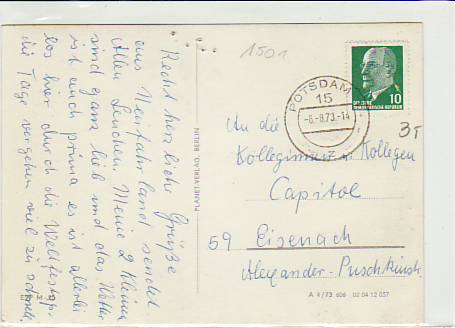 Recht herzliche Grüße
aus Neu Fahrland sendet
Allen Lenchen. Meine 2 Kleinen
sind ganz lieb und das Wetter
ist auch prima es ist allerlei
los hier durch die Weltfestsp.
die Tage vergehen viel zu schnell.
1501
POTSDAM
15
-6.-8.73.-14
DEUTSCHE
DEMOKRATISCHE REPUBLIK
10
3T
An die
Kolleginnen u. Kollegen
Capitol
59 Eisenach
Alexander-Puschkinstr.
PLANET-VERLAG, BERLIN
A 4/73 606 02 04 12 037